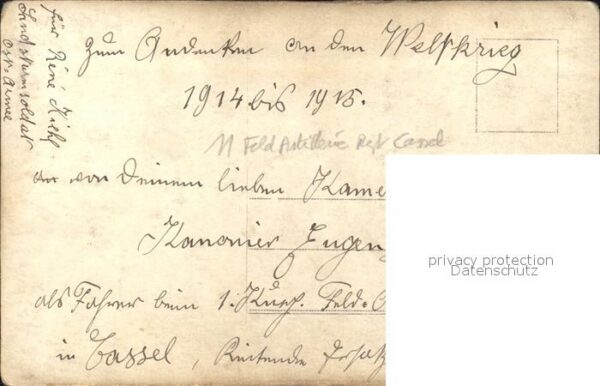 für René Kiehl
Landsturmsoldat
Ost-Armee
Zum Andenken an den Weltkrieg
1914 bis 1915.
11 Feld Artillerie Regt Cassel
von Deinem lieben Kame
Kanonier Eugen
als Fahrer beim 1. Kurh. Feld-A
in Cassel, Reitende Ersatz
privacy protection
Datenschutz